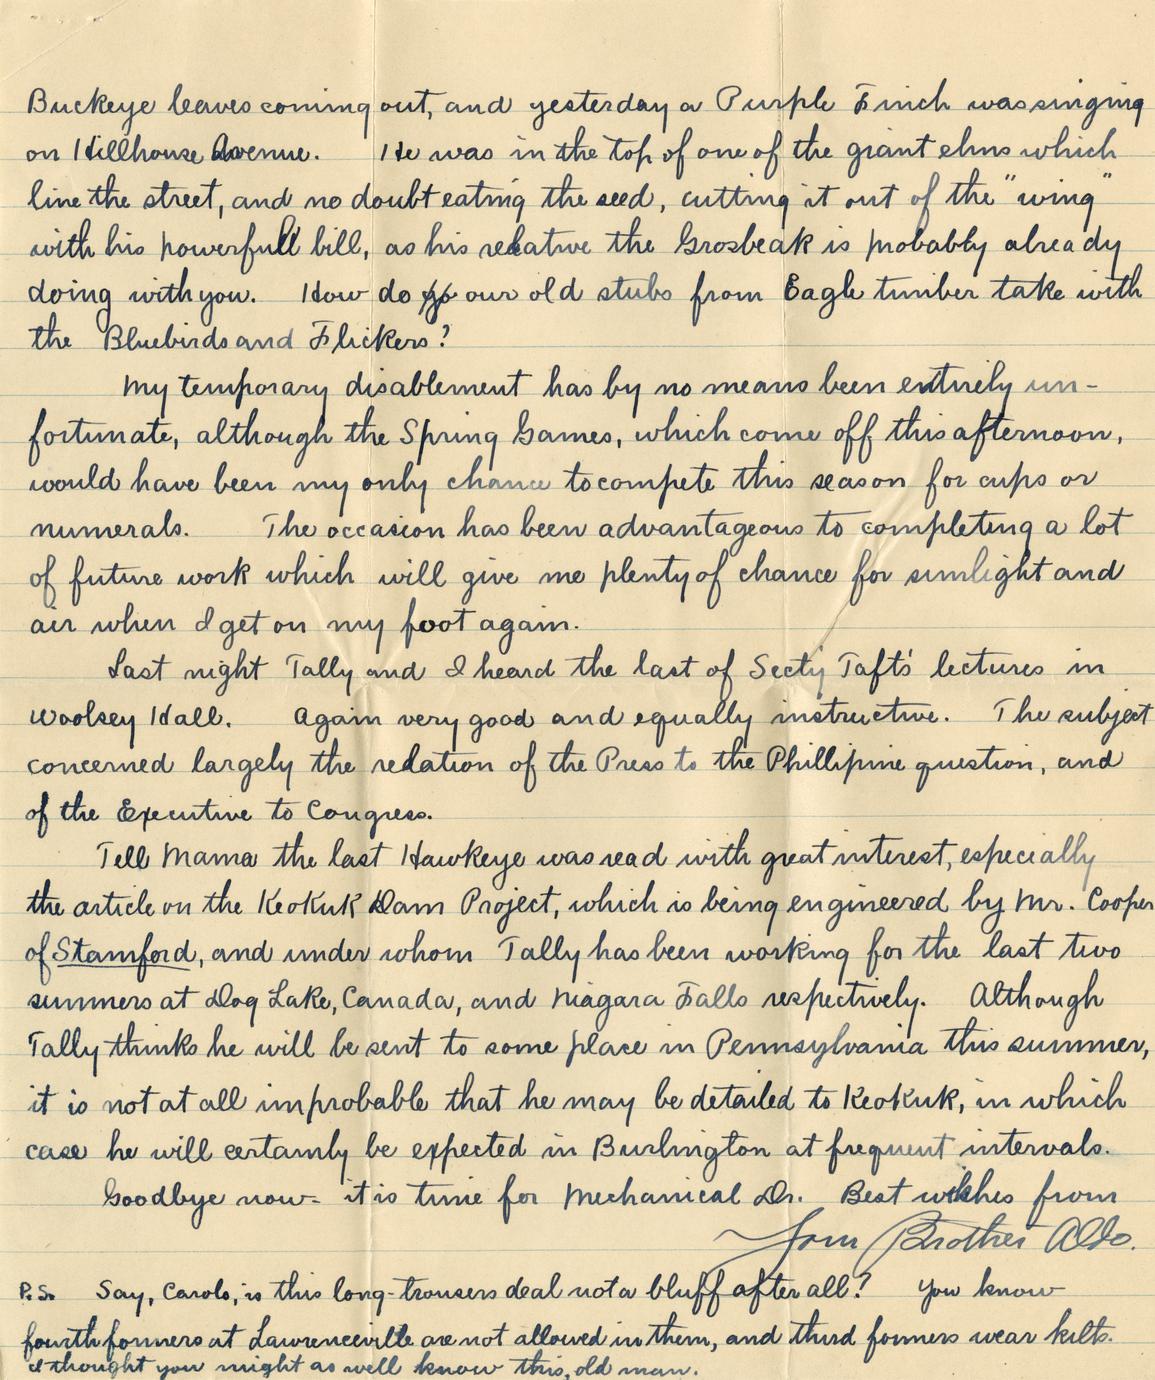 Buckeye leaves coming out, and yesterday a Purple Finch was singing
on Hillhouse Avenue. He was in the top of one of the giant elms which
line the street, and no doubt eating the seed, cutting it out of the "wing"
with his powerfull bill, as his relative the Grosbeak is probably already
doing with you. How do our old stubs from Eagle timber take with
the Bluebirds and Flickers?
My temporary disablement has by no means been entirely un-
fortunate, although the Spring Games, which come off this afternoon,
would have been my only chance to compete this season for cups or
numerals. The occasion has been advantageous to completing a lot
of future work which will give me plenty of chance for sunlight and
air when I get on my foot again.
Last night Tally and I heard the last of Sect'y Taft's lectures in
Woolsey Hall. Again very good and equally instructive. The subject
concerned largely the relation of the Press to the Phillipine question, and
of the Executive to Congress.
Tell Mama the last Hawkeye was read with great interest, especially
the article on the Keokuk Dam Project, which is being engineered by Mr. Cooper
of Stamford, and under whom Tally has been working for the last two
summers at Dog Lake, Canada, and Niagara Falls respectively. Although
Tally thinks he will be sent to some place in Pennsylvania this summer,
it is not at all improbable that he may be detailed to Keokuk, in which
case he will certainly be expected in Burlington at frequent intervals.
Goodbye now - it is time for Mechanical Dr. Best wishes from
Your Brother Aldo.
P.S. Say, Carolo, is this long-trousers deal not a bluff after all? You know
fourth formers at Lawrenceville are not allowed in them, and third formers wear kilts.
I thought you might as well know this, old man.